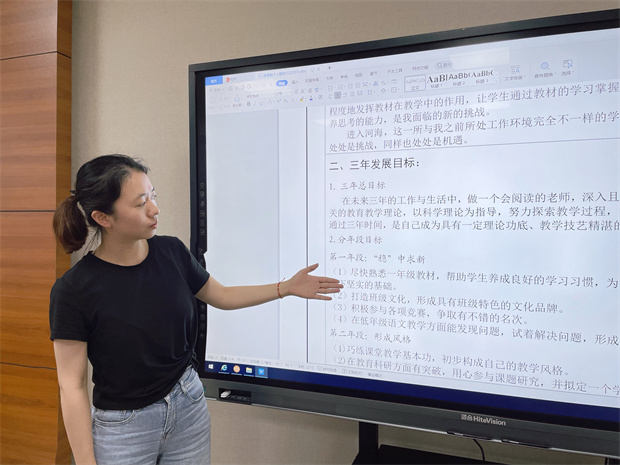 程度地发挥教材在教学中的作用，让学生通过教材的学习掌握
养思考的能力，是我面临的新的挑战。
进入河海，这一所与我之前所处工作环境完全不一样的学
处处是挑战，同样也处处是机遇。
二、三年发展目标：
1. 三年总目标
在未来三年的工作与生活中，做一个会阅读的老师，深入且
关的教育教学理论，以科学理论为指导，努力探索教学过程，
通过三年时间，是自己成为具有一定理论功底、教学技艺精湛的
2. 分年段目标
第一年段：“稳”中求新
（1）尽快熟悉一年级教材，帮助学生养成良好的学习习惯，为
下坚实的基础。
（2）打造班级文化，形成具有班级特色的文化品牌。
（3）积极参与各项竞赛，争取有不错的名次。
（4）在低年级语文教学方面能发现问题，试着解决问题，形成
第二年段：形成风格
（1）巧练课堂教学基本功，初步构成自己的教学风格。
（2）在教育科研方面有突破，用心参与课题研究，并拟定一个学
鸿合HiteVision